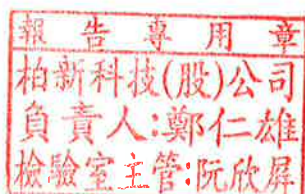 報告專用章
柏新科技(股)公司
負責人:鄭仁雄
檢驗室主管:阮欣屏